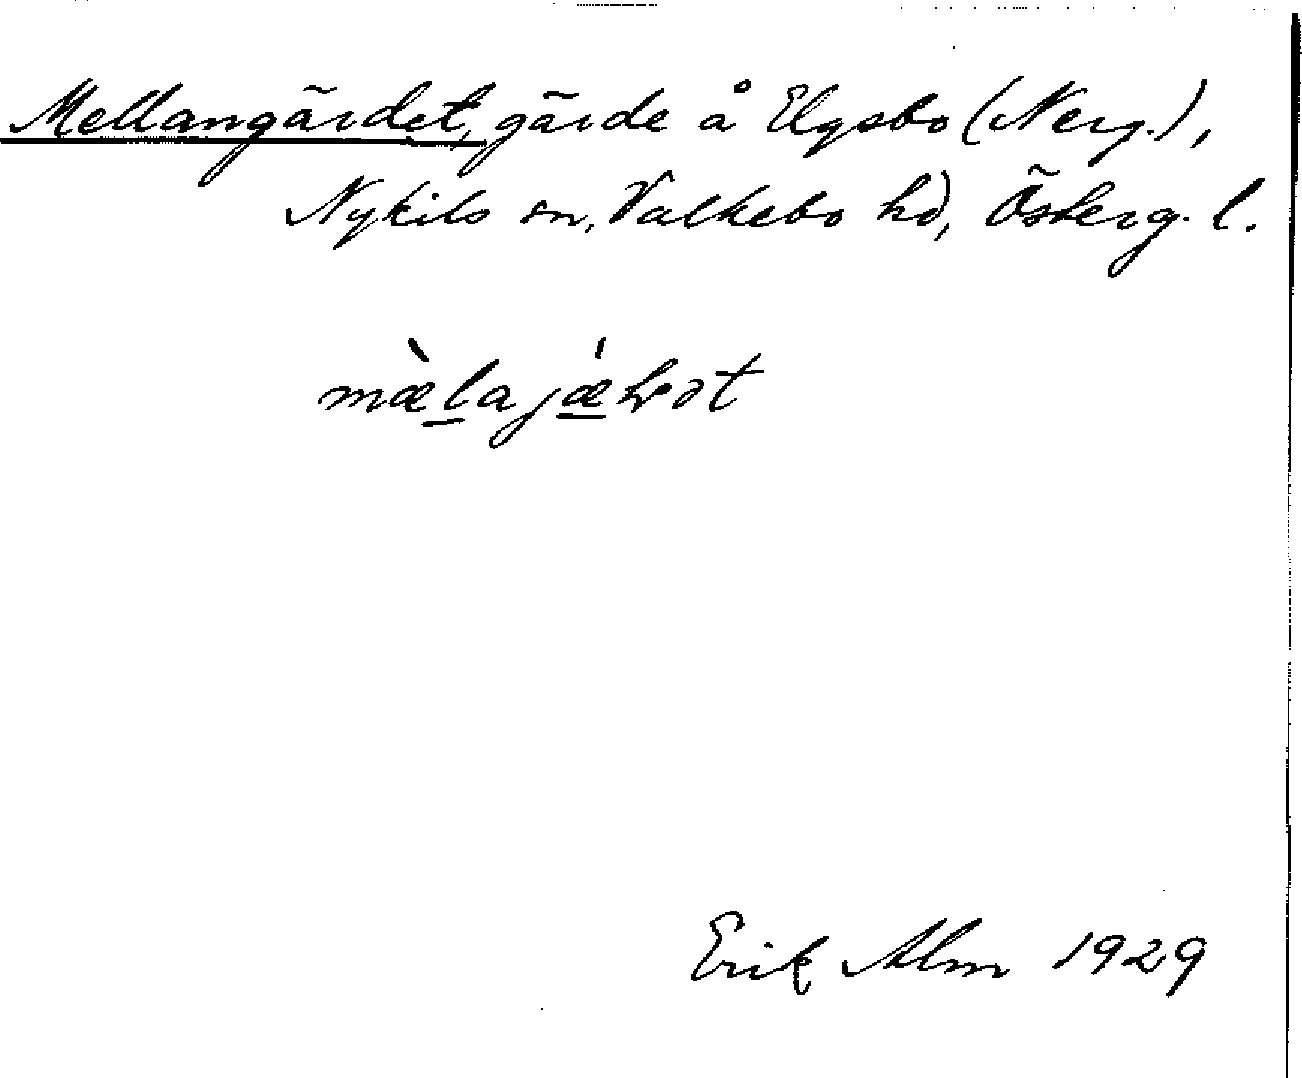 Mellangärdet, gärde å Elgsbo (Nerg.),
Nykils sn, Valkebo hd, Österg. l.
mæ̀l̲ajǽ̲
Erik Alm 1929